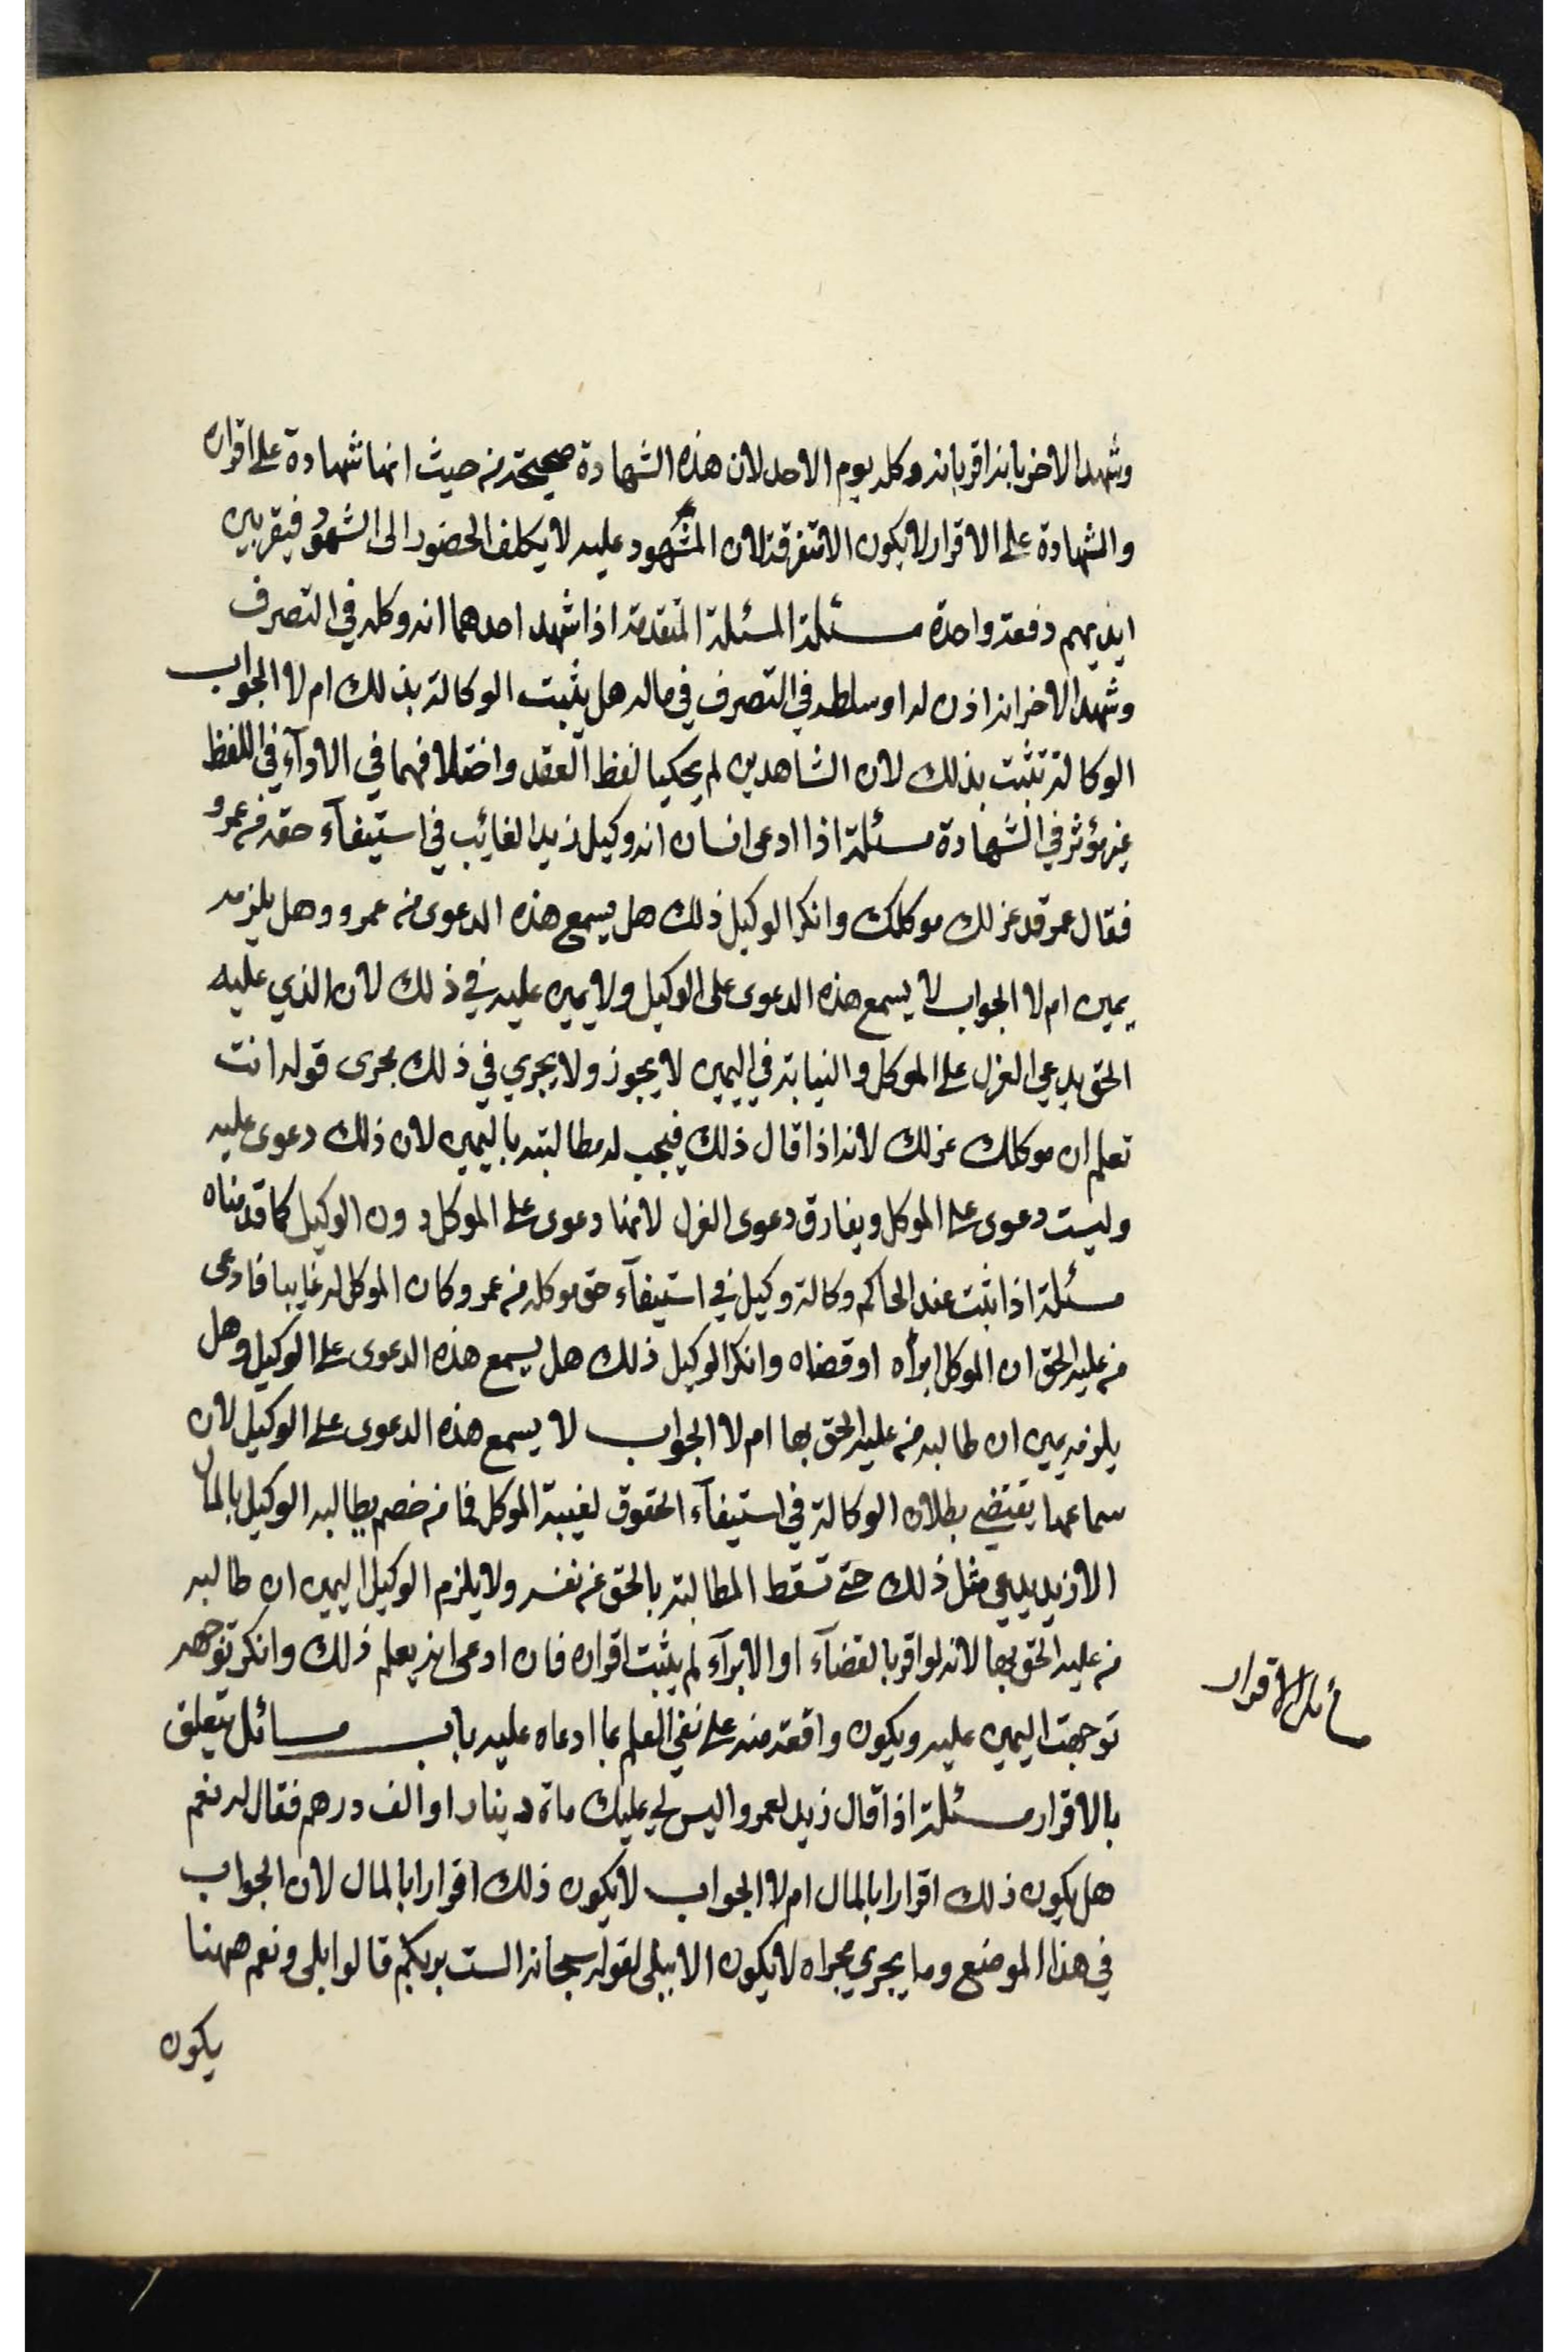 وشهد الاخر بانه اقر بانه وكله يوم الاحد لان هذه الشهادة صحيحة من حيث انها شهادة على اقراره
والشهادة على الاقرار لا يكون الا متفرقة لان المشهود عليه لا يكلف الحضور الى الشهود فيقر بين
ايديهم دفعة واحدة مسئلة المسئلة المتقدمة اذا شهد احدهما انه وكله في التصرف
وشهد الاخر انه اذن له او سلطه في التصرف في ماله هل يثبت الوكالة بذلك ام لا الجواب
الوكالة تثبت بذلك لان الشاهدين لم يحكيا لفظ العقد واختلافهما في الادآء في اللفظ
غير مؤثر في الشهادة مسئلة اذا ادعى انسان انه وكيل زيد الغائب في استيفآء حقه من عمرو
فقال عمرو قد عزلك موكلك وانكر الوكيل ذلك هل يسمع هذه الدعوى من عمرو وهل يلزمه
يمين ام لا الجواب لا يسمع هذه الدعوى على الوكيل ولا يمين عليه في ذلك لان الذي عليه
الحق يدعي العزل على الموكل والنيابة في اليمين لا يجوز ولا يجري في ذلك مجرى قوله انت
تعلم ان موكلك عزلك لانه اذا قال ذلك فيجب له مطالبته باليمين لان ذلك دعوى عليه
وليست دعوى على الموكل ويفارق دعوى العزل لانها دعوى على الموكل دون الوكيل كما قدمناه
مسئلة اذا ثبت عند الحاكم وكالة وكيل في استيفآء حق موكله من عمرو وكان الموكل له غايبا فادعى
من عليه الحق ان الموكل ابرأه او قضاه وانكر الوكيل ذلك هل يسمع هذه الدعوى على الوكيل وهل
يلزمه يمين ان طالبه من عليه الحق بها ام لا الجواب لا يسمع هذه الدعوى على الوكيل لان
سماعها يقتضي بطلان الوكالة في استيفآء الحقوق لغيبة الموكل فما من خصم يطالبه الوكيل بالمال
الا ويدعي مثل ذلك حتى تسقط المطالبة بالحق عن نفسه ولا يلزم الوكيل اليمين ان طالبه
من عليه الحق بها لانه لو اقر بالقضآء او الابرآء لم يثبت اقراره فان ادعى انه يعلم ذلك وانكر توجه
توجهت اليمين عليه ويكون واقعة منه على نفي العلم بما ادعاه عليه باب مسائل يتعلق
بالاقرار مسئلة اذا قال زيد لعمرو اليس لي عليك ماة دينار او الف درهم فقال له نعم
هل يكون ذلك اقرارا بالمال ام لا الجواب لا يكون ذلك اقرارا بالمال لان الجواب
في هذا الموضع وما يجري مجراه لا يكون الا ببلى لقوله سبحانه الست بربكم قالوا بلى ونعم ههنا
يكون
مسائل الاقرار